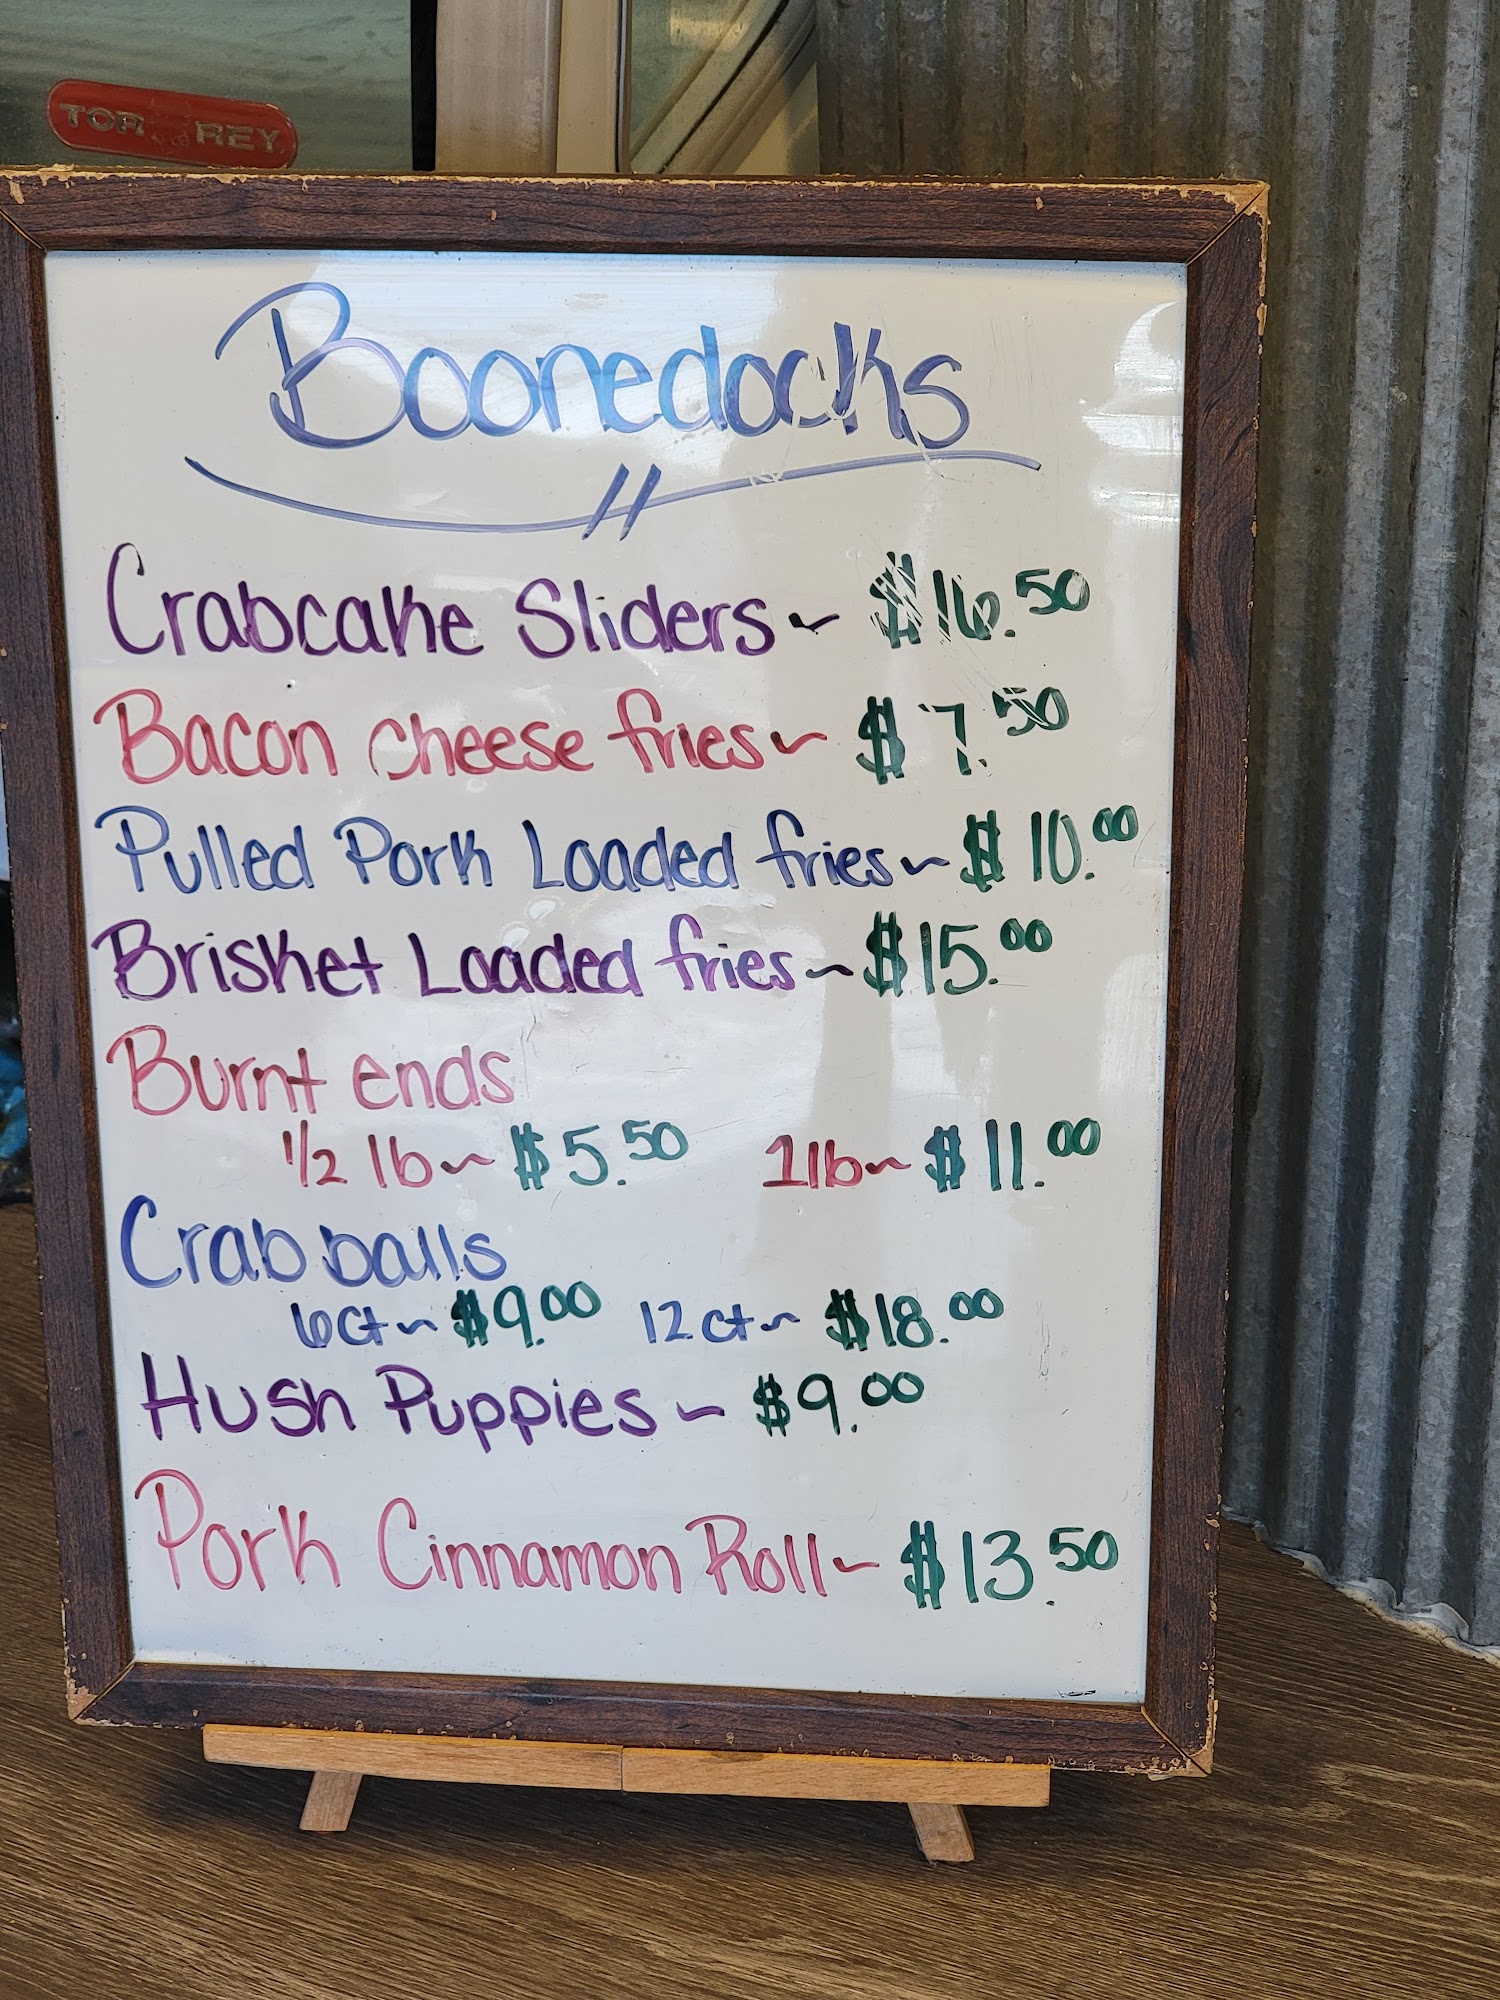 TOR REY
Boonedocks
Crabcake Sliders ~ $16.50
Bacon cheese fries ~ $7.50
Pulled Pork Loaded fries ~ $10.00
Brisket Loaded fries ~ $15.00
Burnt ends
1/2 lb ~ $5.50 1lb ~ $11.00
Crab balls
6ct ~ $9.00 12ct ~ $18.00
Hush Puppies ~ $9.00
Pork Cinnamon Roll ~ $13.50